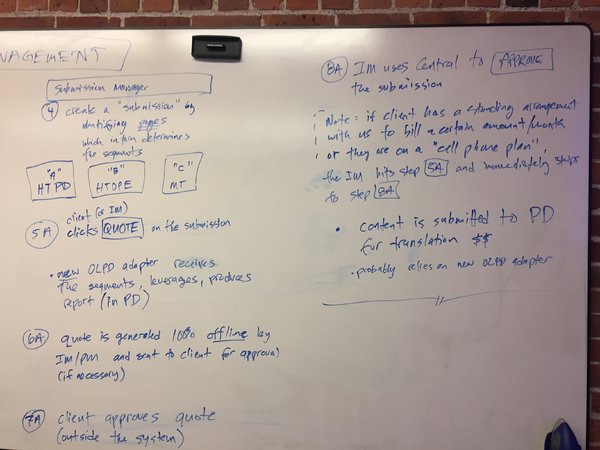 NAGEMENT
Submission Manager
④ create a "submission" by
identifying pages
which in turn determines
the segments
"A"
HTPD
"B"
HTOPE
"C"
MT
client (or IM)
5A clicks QUOTE on the submission
• new OLPD adapter receives
the segments, leverages, produces
report (in PD)
6A quote is generated 100% offline by
IM/PM and sent to client for approval
(if necessary)
7A client approves quote
(outside the system)
8A IM uses Central to APPROVE
the submission
Note: if client has a standing arrangement
with us to bill a certain amount/month
or they are on a "cell phone plan"
the IM hits step 5A and immediately skips
to step 8A
• content is submitted to PD
for translation $$
• probably relies on new OLPD adapter